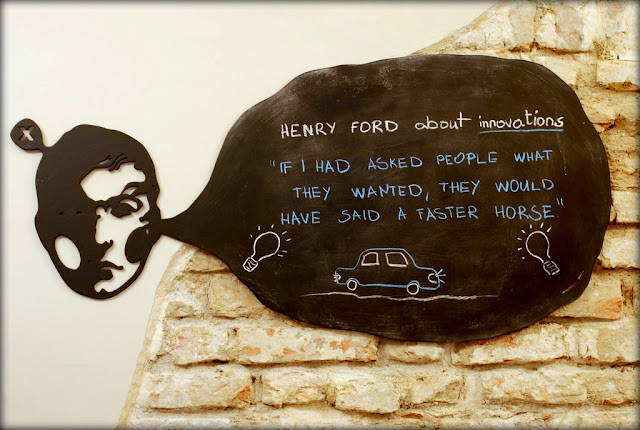 HENRY FORD about innovations
"IF I HAD ASKED PEOPLE WHAT
THEY WANTED, THEY WOULD
HAVE SAID A FASTER HORSE"